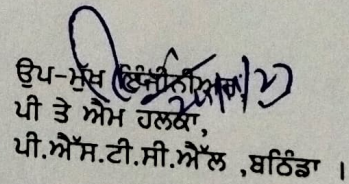 ਉਪ-ਮੁੱਖ ਇੰਜੀਨੀਅਰ,
ਪੀ ਤੇ ਐਮ ਹਲਕਾ,
ਪੀ.ਐੱਸ.ਟੀ.ਸੀ.ਐੱਲ ,ਬਠਿੰਡਾ ।